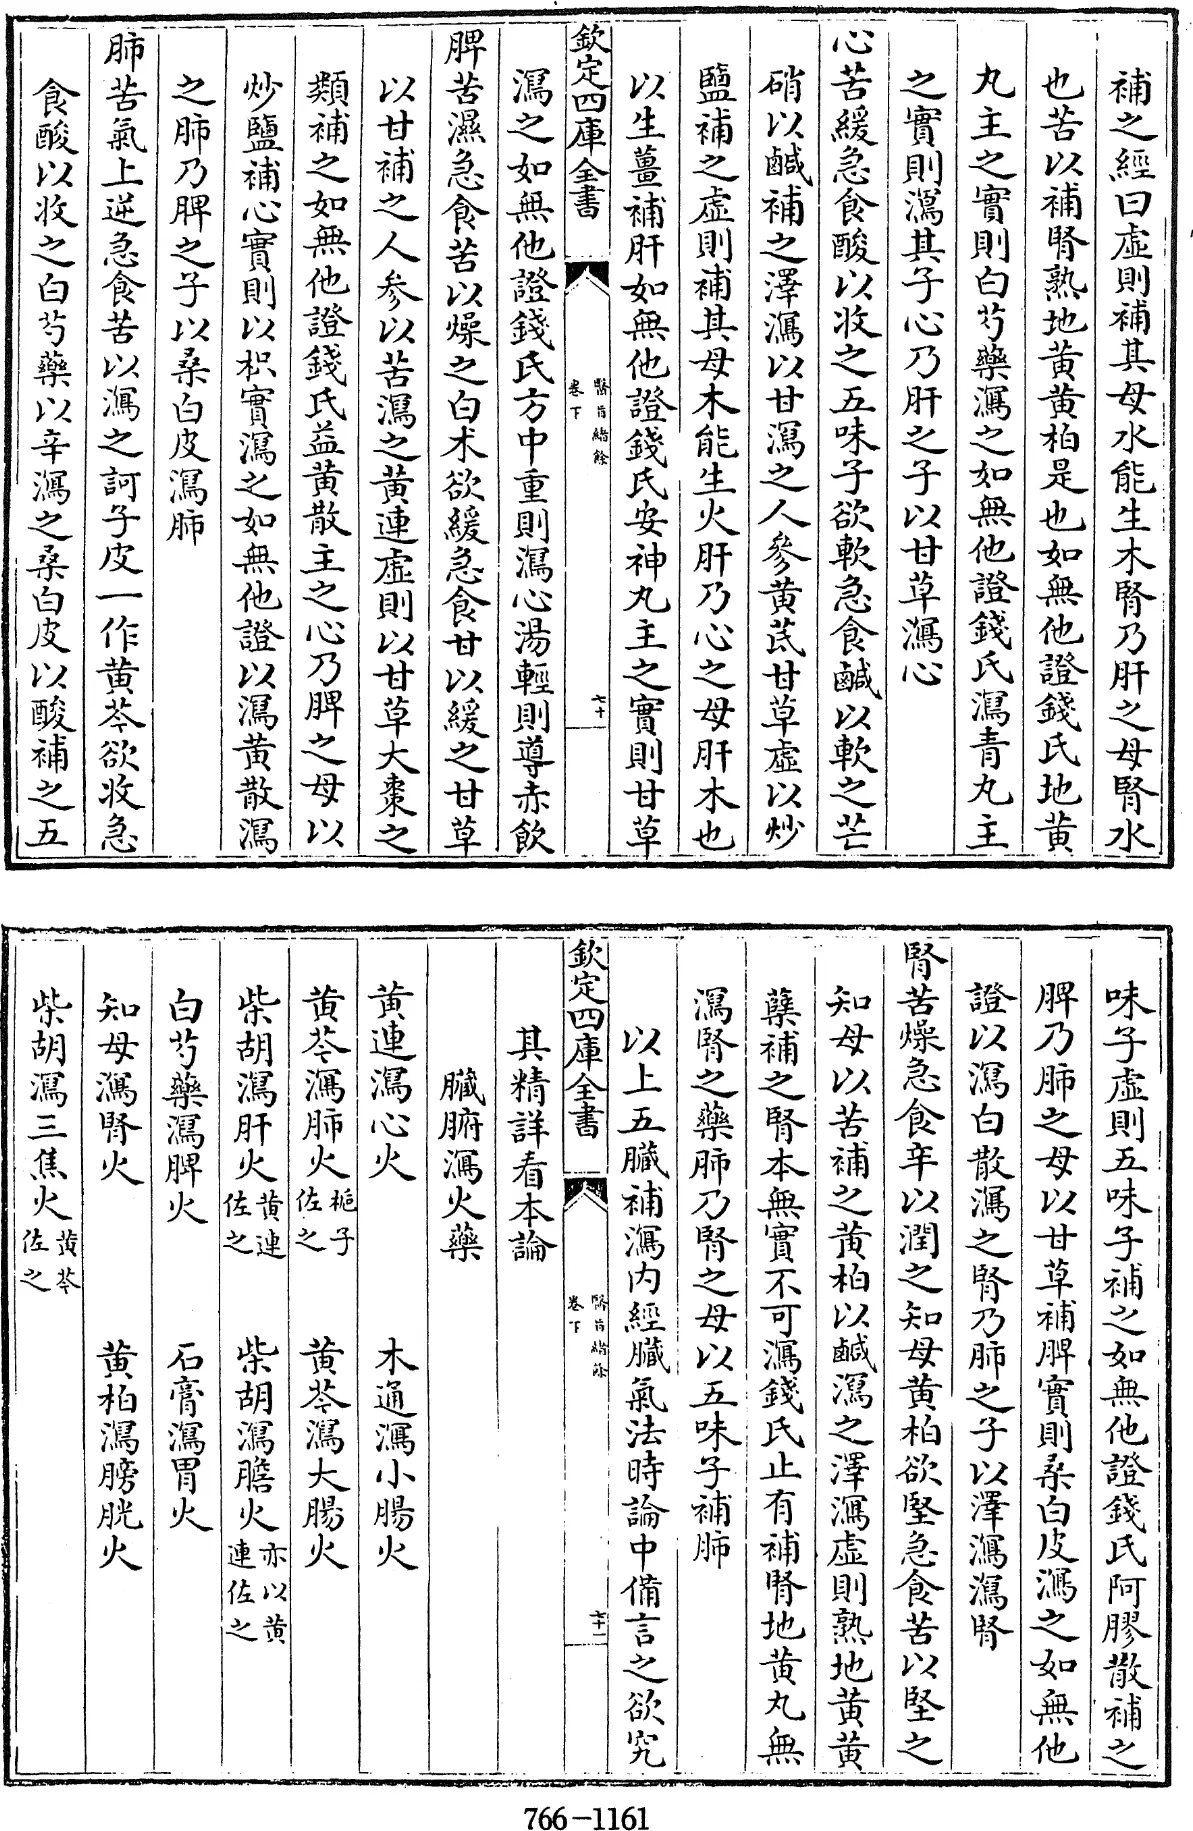 補之經曰虛則補其母水能生木腎乃肝之母腎水
也苦以補腎熟地黄黄柏是也如無他證錢氏地黄
丸主之實則白芍藥瀉之如無他證錢氏瀉青丸主
之實則瀉其子心乃肝之子以甘草瀉心
心苦緩急食酸以收之五味子欲軟急食鹹以軟之芒
硝以鹹補之澤瀉以甘瀉之人參黄芪甘草虛以炒
鹽補之虛則補其母木能生火肝乃心之母肝木也
以生薑補肝如無他證錢氏安神丸主之實則甘草
欽定四庫全書
醫旨緒餘
卷下
七十
瀉之如無他證錢氏方中重則瀉心湯輕則導赤飲
脾苦濕急食苦以燥之白术欲緩急食甘以緩之甘草
以甘補之人參以苦瀉之黄連虛則以甘草大棗之
類補之如無他證錢氏益黄散主之心乃脾之母以
炒鹽補心實則以枳實瀉之如無他證以瀉黄散瀉
之肺乃脾之子以桑白皮瀉肺
肺苦氣上逆急食苦以瀉之訶子皮一作黄芩欲收急
食酸以收之白芍藥以辛瀉之桑白皮以酸補之五
味子虛則五味子補之如無他證錢氏阿膠散補之
脾乃肺之母以甘草補脾實則桑白皮瀉之如無他
證以瀉白散瀉之腎乃肺之子以澤瀉瀉腎
腎苦燥急食辛以潤之知母黄柏欲堅急食苦以堅之
知母以苦補之黄柏以鹹瀉之澤瀉虛則熟地黄黄
蘗補之腎本無實不可瀉錢氏止有補腎地黄丸無
瀉腎之藥肺乃腎之母以五味子補肺
以上五臟補瀉内經臟氣法時論中備言之欲究
欽定四庫全書
醫旨緒餘
卷下
七十一
其精詳看本論
臟腑瀉火藥
黄連瀉心火 木通瀉小腸火
黄芩瀉肺火梔子佐之 黄芩瀉大腸火
柴胡瀉肝火黄連佐之 柴胡瀉膽火亦以黄連佐之
白芍藥瀉脾火 石膏瀉胃火
知母瀉腎火 黄柏瀉膀胱火
柴胡瀉三焦火黄芩佐之
766-1161